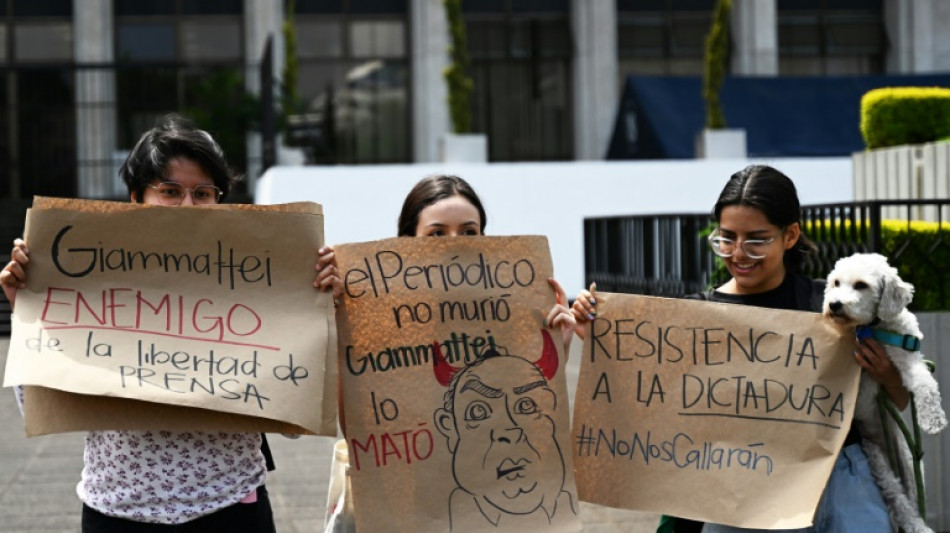 Giammattei
ENEMIGO
de la libertad de
PRENSA
el Periódico
no murió
Giammattei
lo
MATÓ
RESISTENCIA
A LA DICTADURA
#NoNosCallarán